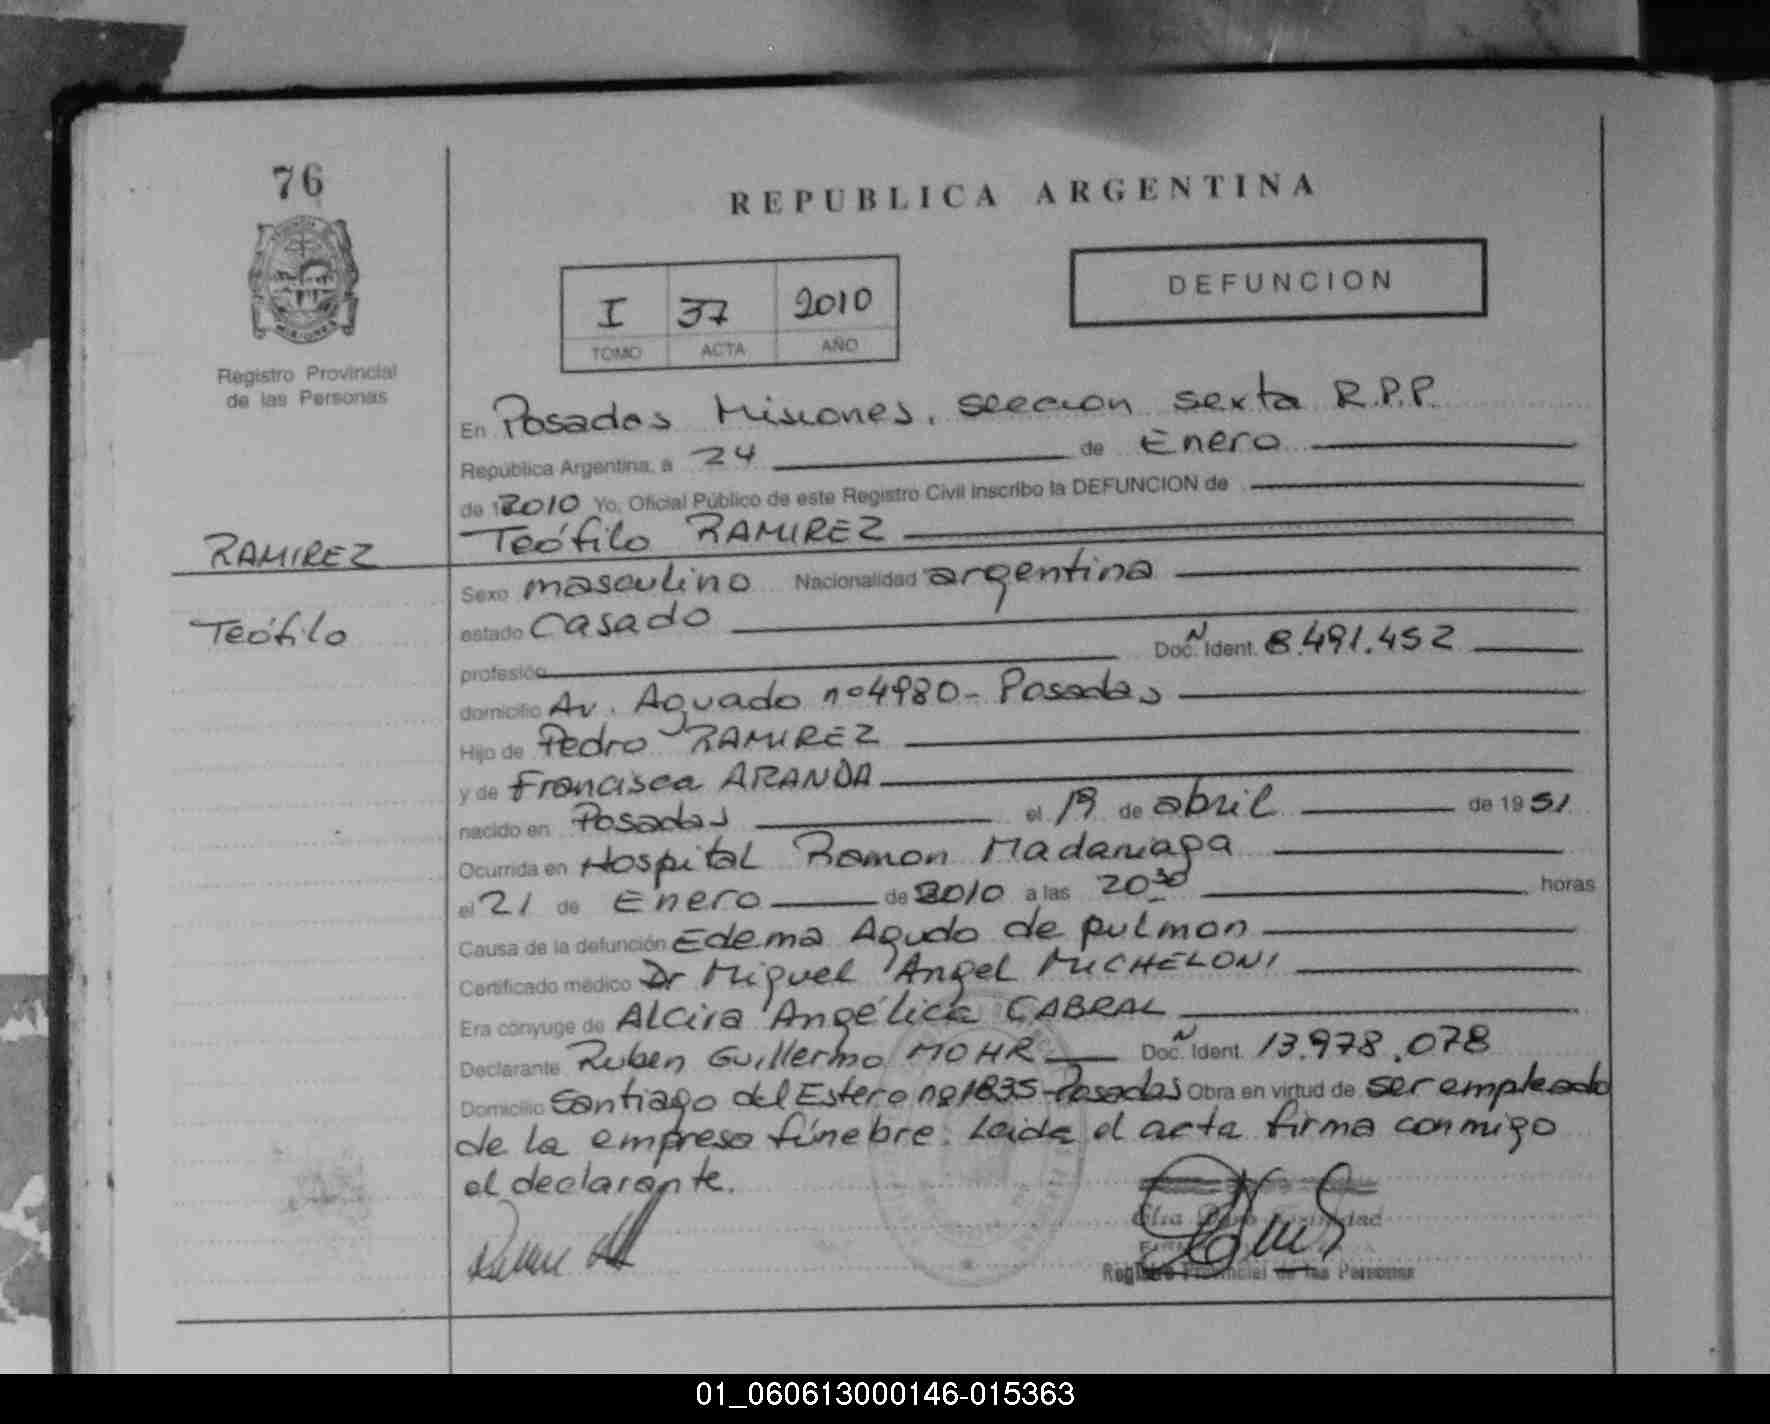 76
REPUBLICA ARGENTINA
DEFUNCION
I 37 2010
TOMO ACTA AÑO
MISIONES
Registro Provincial
de las Personas
En Posadas Misiones, seccion sexta R.P.P.
República Argentina, a 24 de Enero
de 2010 Yo, Oficial Público de este Registro Civil inscribo la DEFUNCION de
Teófilo RAMIREZ
RAMIREZ
Teófilo
Sexo masculino Nacionalidad argentina
estado Casado
profesión Doc. Ident. 8.491.452
domicilio Av. Aguado nº 4980- Posadas
Hijo de Pedro RAMIREZ
y de Francisca ARANDA
nacido en Posadas el 19 de abril de 1951
Ocurrida en Hospital Ramon Madariaga
el 21 de Enero de 2010 a las 20³⁰ horas
Causa de la defunción Edema Agudo de pulmon
Certificado médico Dr Miguel Angel MICHELONI
Era cónyuge de Alcira Angélica CABRAL
Declarante Ruben Guillermo MOHR Doc. Ident. 13.978.078
Domicilio Santiago del Estero nº 1835-Posadas Obra en virtud de ser empleado
de la empresa fúnebre. Leida el acta firma conmigo
el declarante.
Registro Provincial de las Personas
01_060613000146-015363